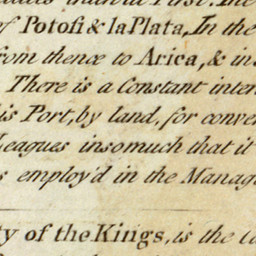 of Potosi & la Plata, In the
from thence to Arica, & in
There is a Constant inter
is Port, by land, for conve
Leagues insomuch that it
s employ'd in the Manag
ty of the Kings, is the